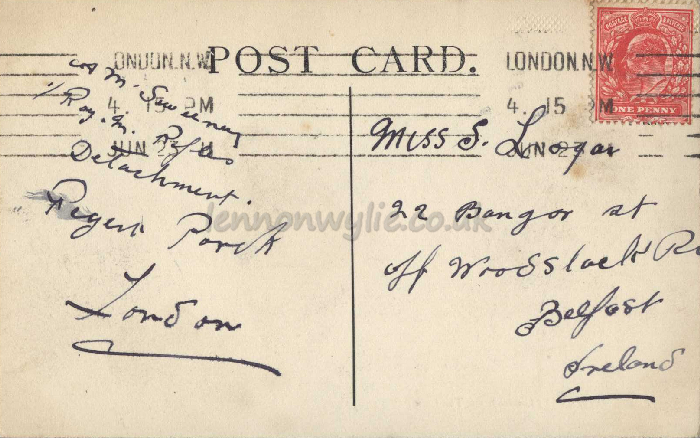 POST CARD.
LONDON.N.W
4. 15 PM
JUN 2
LONDON.N.W
4. 15 PM
JUN 2
ONE PENNY
M. Sweeney
1/ Roy. Ir. Rifles
Detachment.
Regent Park
London
Miss S. Logan
22 Bangor st
off Woodstock Rd
Belfast
Ireland
lennonwylie.co.uk